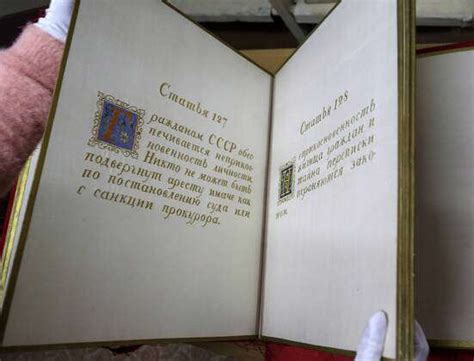 Статья 127
Гражданам СССР обес
печивается неприкос
новенность личности.
Никто не может быть
подвергнут аресту иначе как
по постановлению суда или
с санкции прокурора.
Статья 128
Неприкосновенность
жилища граждан и
тайна переписки
охраняются зако-
ном.